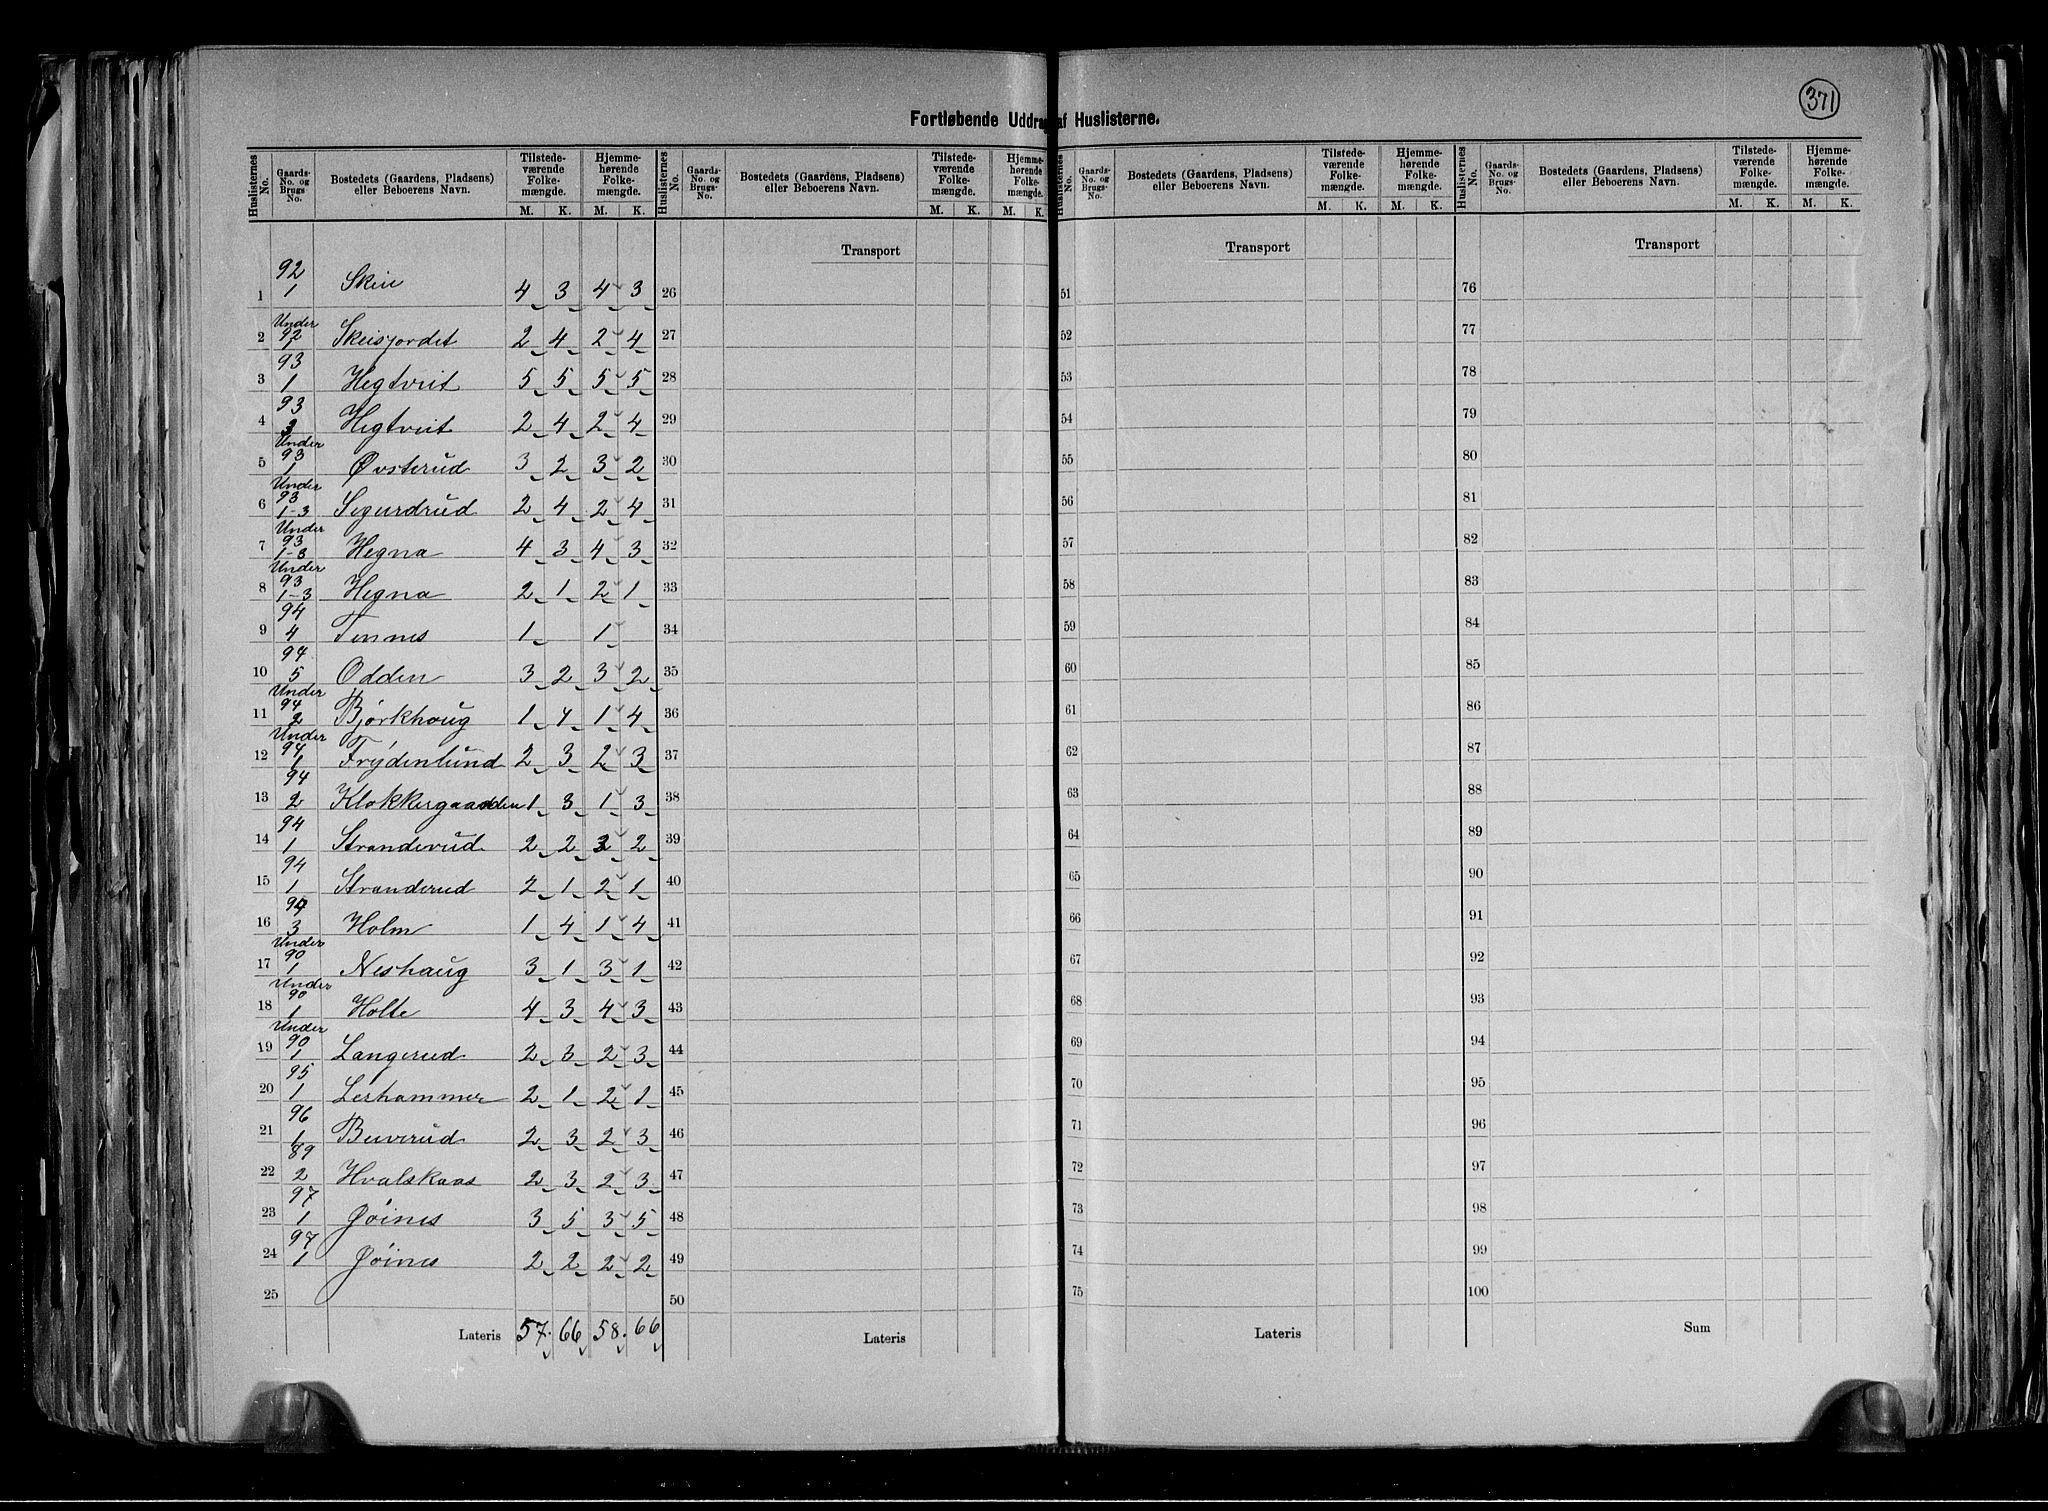 371
Fortløbende Uddrag af Huslisterne.
Huslisternes No. | Gaards-No. og Brugs-No. | Bostedets (Gaardens, Pladsens) eller Beboerens Navn. | Tilstedeværende Folkemængde. M. K. | Hjemmehørende Folkemængde. M. K.
1 | 92 1 | Skeie | 4 3 | 4 3
2 | Under 92 1 | Skeisjordet | 2 4 | 2 4
3 | 93 1 | Hegtveit | 5 5 | 5 5
4 | 93 3 | Hegtveit | 2 4 | 2 4
5 | Under 93 1 | Øvsterud | 3 2 | 3 2
6 | Under 93 1-3 | Sigurdrud | 2 4 | 2 4
7 | Under 93 1-3 | Hegna | 4 3 | 4 3
8 | Under 93 1-3 | Hegna | 2 1 | 2 1
9 | 94 4 | Tinnes | 1 | 1
10 | 94 5 | Odden | 3 2 | 3 2
11 | Under 94 2 | Bjørkhoug | 1 4 | 1 4
12 | Under 94 1 | Frydenlund | 2 3 | 2 3
13 | 94 2 | Klokkergaarden | 1 3 | 1 3
14 | 94 1 | Stranderud | 2 2 | 3 2
15 | 94 1 | Stranderud | 2 1 | 2 1
16 | 94 3 | Holm | 1 4 | 1 4
17 | Under 90 1 | Neshaug | 3 1 | 3 1
18 | Under 90 1 | Holte | 4 3 | 4 3
19 | Under 90 1 | Langerud | 2 3 | 2 3
20 | 95 1 | Leshammer | 2 1 | 2 1
21 | 96 1 | Buverud | 2 3 | 2 3
22 | 89 2 | Hvalskaas | 2 3 | 2 3
23 | 97 1 | Øines | 3 5 | 3 5
24 | 97 1 | Øines | 2 2 | 2 2
25
Lateris 57 66 58 66
Huslisternes No. | Gaards-No. og Brugs-No. | Bostedets (Gaardens, Pladsens) eller Beboerens Navn. | Tilstedeværende Folkemængde. M. K. | Hjemmehørende Folkemængde. M. K.
Transport
26
27
28
29
30
31
32
33
34
35
36
37
38
39
40
41
42
43
44
45
46
47
48
49
50
Lateris
Huslisternes No. | Gaards-No. og Brugs-No. | Bostedets (Gaardens, Pladsens) eller Beboerens Navn. | Tilstedeværende Folkemængde. M. K. | Hjemmehørende Folkemængde. M. K.
Transport
51
52
53
54
55
56
57
58
59
60
61
62
63
64
65
66
67
68
69
70
71
72
73
74
75
Lateris
Huslisternes No. | Gaards-No. og Brugs-No. | Bostedets (Gaardens, Pladsens) eller Beboerens Navn. | Tilstedeværende Folkemængde. M. K. | Hjemmehørende Folkemængde. M. K.
Transport
76
77
78
79
80
81
82
83
84
85
86
87
88
89
90
91
92
93
94
95
96
97
98
99
100
Sum